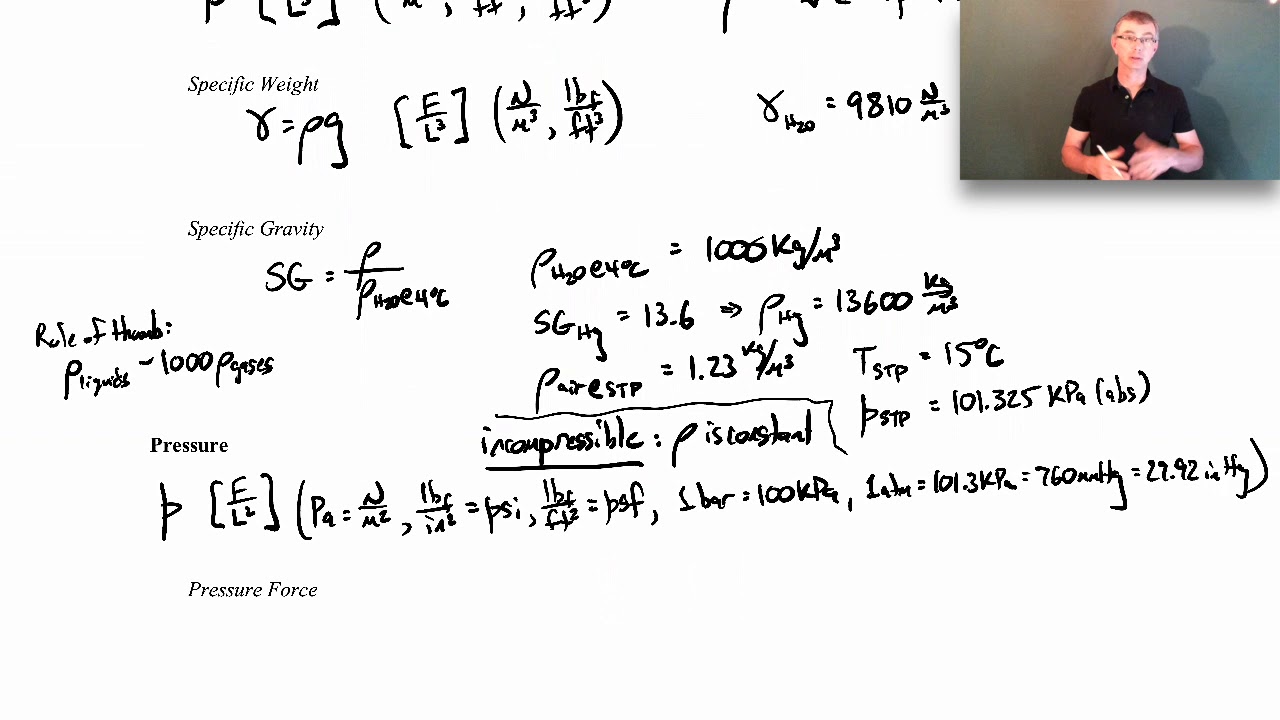 Specific Weight
γ = ρg [F/L³] (N/m³, lbf/ft³) γ_H2O = 9810 N/m³
Specific Gravity
SG = ρ/ρ_H2O@4°C ρ_H2O@4°C = 1000 kg/m³
SG_Hg = 13.6 ⇒ ρ_Hg = 13600 kg/m³
Rule of thumb:
ρ_liquids ~ 1000 ρ_gases
ρ_air@STP = 1.23 kg/m³ T_STP = 15°C
p_STP = 101.325 kPa (abs)
incompressible: ρ is constant
Pressure
p [F/L²] (Pa = N/m², lbf/in² = psi, lbf/ft² = psf, 1 bar = 100 kPa, 1 atm = 101.3 kPa = 760 mmHg = 29.92 in Hg)
Pressure Force